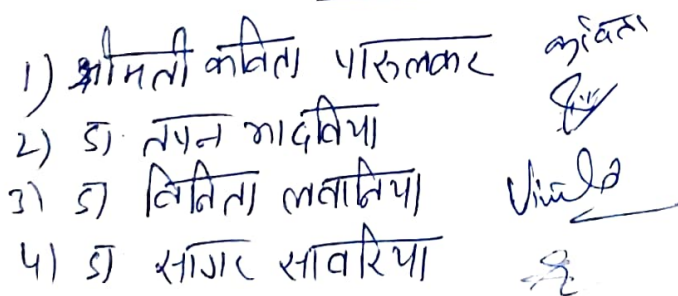 1) श्रीमती कविता पारुलकर कविता
2) डा. तपन भादविया
3) डा विनिता लवानिया
4) डा सागर सावरिया